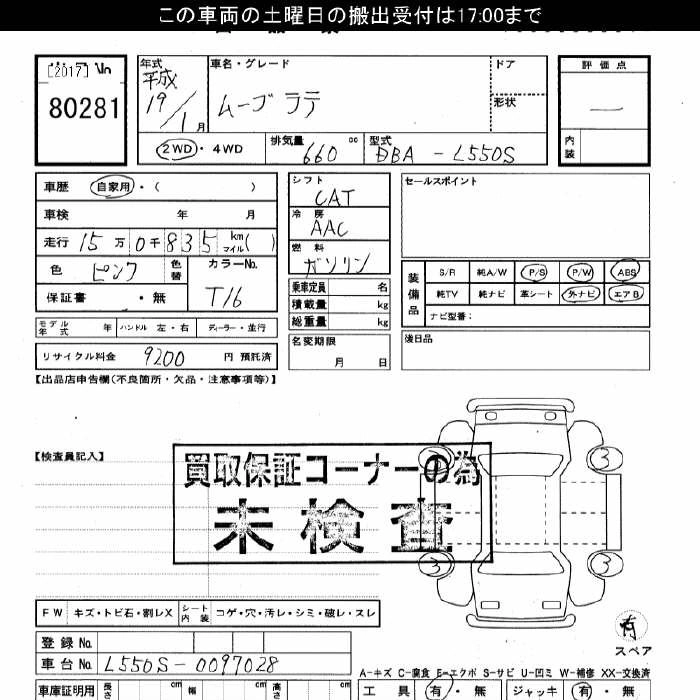 この車両の土曜日の搬出受付は17:00まで
[2017] No
80281
年式
平成
19/1月
車名・グレード
ムーブ ラテ
ドア
形状
評価点
—
内装
2WD・4WD
排気量 660 cc
型式 DBA - L550S
車歴 自家用・( )
車検 年 月
走行 15万0千835 km マイル( )
色 ピンク 色替
カラーNo. T16
保証書 ・無
モデル年式 年 ハンドル 左・右 ディーラー・並行
リサイクル料金 9200 円 預託済
シフト
CAT
冷房
AAC
燃料
ガソリン
乗車定員 名
積載量 kg
総重量 kg
名変期限
月 日
セールスポイント
装備品
S/R 純A/W P/S P/W ABS
純TV 純ナビ 革シート 外ナビ エアB
ナビ型番:
後日品
【出品店申告欄(不良箇所・欠品・注意事項等)】
【検査員記入】
買取保証コーナーの為
未検査
3 3
3 3
有
スペア
FW キズ・トビ石・割レX シート内装 コゲ・穴・汚レ・シミ・破レ・スレ
登録No.
車台No. L550S-0097028
A-キズ C-腐食 E-エクボ S-サビ U-凹ミ W-補修 XX-交換済
車庫証明用 長さ cm 幅 cm 高さ cm
工具 有・無 ジャッキ 有・無